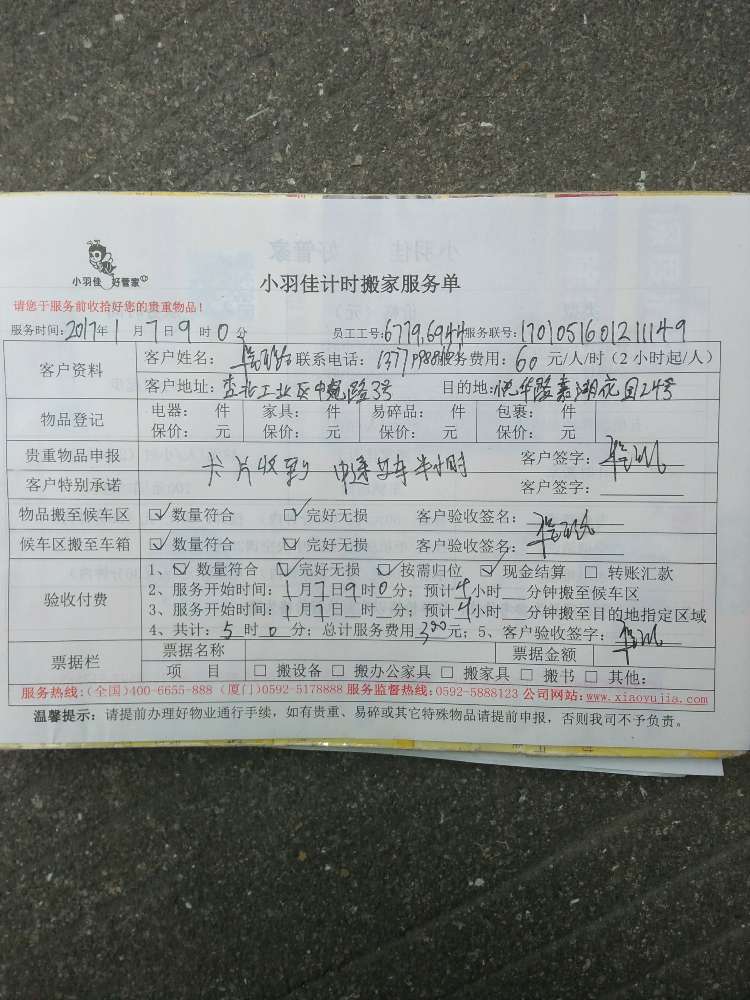 小羽佳 好管家
小羽佳计时搬家服务单
请您于服务前收拾好您的贵重物品！
服务时间：2017年1月7日9时0分 员工工号：6779,6944 服务联号：170105160121149
客户资料
客户姓名： 联系电话： 服务费用：60元/人/时（2小时起/人）
客户地址： 北工业区中 路3号 目的地：悦华路嘉湖花园24号
物品登记
电器： 件 家具： 件 易碎品： 件 包裹： 件
保价： 元 保价： 元 保价： 元 保价： 元
贵重物品申报 客户签字：
卡片收到 半小时
客户特别承诺 客户签字：
物品搬至候车区 ☑数量符合 ☑完好无损 客户验收签名：
候车区搬至车箱 ☑数量符合 ☑完好无损 客户验收签名：
验收付费
1、☑数量符合 ☑完好无损 ☑按需归位 ☑现金结算 □转账汇款
2、服务开始时间：1月7日9时0分；预计4小时__分钟搬至候车区
3、服务开始时间：1月7日__时__分；预计4小时__分钟搬至目的地指定区域
4、共计：5时0分；总计服务费用300元；5、客户验收签字：
票据栏
票据名称 票据金额
项 目 □搬设备 □搬办公家具 □搬家具 □搬书 □其他：
服务热线：(全国)400-6655-888 (厦门)0592-5178888 服务监督热线：0592-5888123 公司网站：www.xiaoyujia.com
温馨提示：请提前办理好物业通行手续，如有贵重、易碎或其它特殊物品请提前申报，否则我司不予负责。